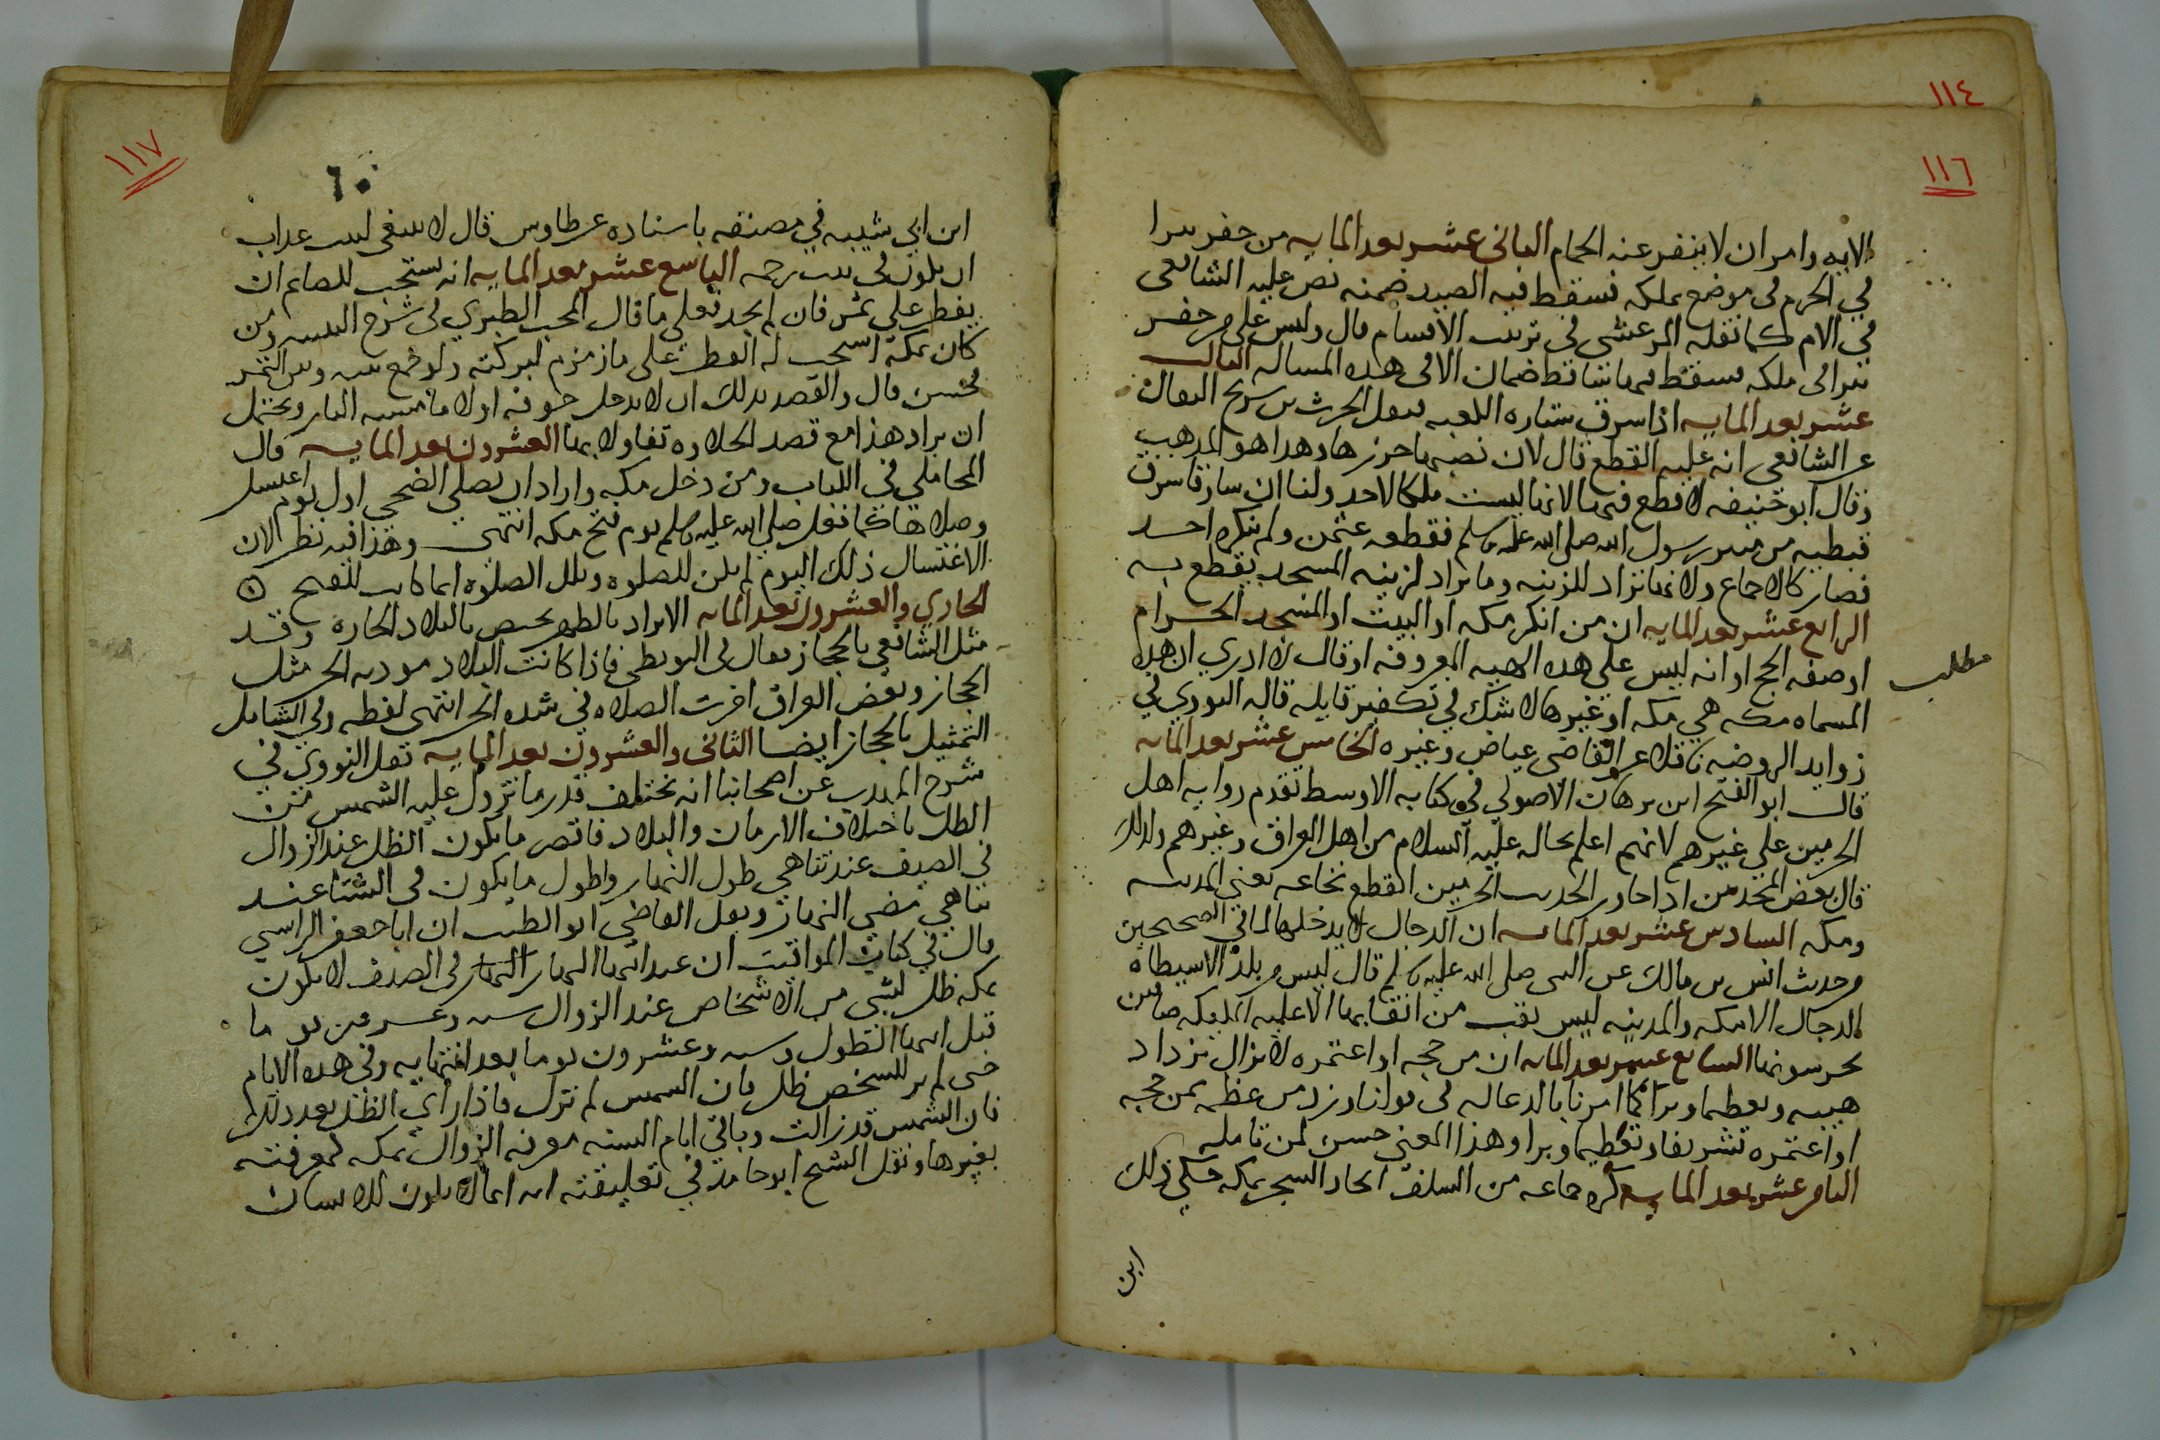 ١١٤
١١٦
الايه وامر ان لا ينفر عنه الحمام الثاني عشر بعد المايه من حفر بيرا
في الحرم في موضع يملكه فسقط فيه الصيد ضمنه نص عليه الشافعي
في الام كما نقله المرعشي في ترتيب الاقسام قال وليس على من حفر
بيرا في ملكه فسقط فيها ساقط ضمان الا في هذه المساله الثالث
عشر بعد المايه اذا سرق ستاره الكعبه فنقل الحرث بن سريج النقال
عن الشافعي ان عليه القطع قال لان نصبها حرزها وهذا هو المذهب
وقال ابو حنيفه لا قطع فيها لانها ليست ملكا لاحد ولنا ان سارقا سرق
قبطيه من منبر رسول الله صلى الله عليه وسلم فقطعه عثمن ولم ينكره احد
فصار كالاجماع ولانها تراد للزينه وما يراد لزينه المسجد يقطع به
الرابع عشر بعد المايه ان من انكر مكه او البيت او المسجد الحرام
او صفه الحج او انه ليس على هذه الهييه المعروفه او قال لا ادري ان هذه
مطلب
المسماه مكه هي مكه او غيرها لا شك في تكفير قايله قاله النووي في
زوايد الروضه ناقلا عن القاضي عياض وغيره الخامس عشر بعد المايه
قال ابو الفتح ابن برهان الاصولي في كتابه الاوسط تقدم روايه اهل
الحرمين علي غيرهم لانهم اعلم بحاله عليه السلام من اهل العراق وغيرهم ولذلك
قال بعض المحدثين اذا جاوز الحديث الحرمين انقطع نخاعه يعني المدينه
ومكه السادس عشر بعد المايه ان الدجال لا يدخلها لما في الصحيحين
من حديث انس بن مالك عن النبي صلى الله عليه وسلم قال ليس من بلد الا سيطاه
الدجال الا مكه والمدينه ليس نقب من انقابها الا عليه الملايكه صافين
يحرسونها السابع عشر بعد المايه ان من حجه او اعتمره لا يزال يزداد
هيبه وتعظيما وبرا كما امرنا بالدعا له في قولنا وزد من عظمه ممن حجه
او اعتمره تشريفا وتعظيما وبرا وهذا المعنى حسن لمن تامله
الثامن عشر بعد المايه كره جماعه من السلف اتخاذ السجن بمكه حكي ذلك
ابن
١١٧
٦٠
ابن ابي شيبه في مصنفه باسناده عن طاوس قال لا ينبغي لبيت عذاب
ان يكون في بيت رحمه التاسع عشر بعد المايه انه يستحب للصايم ان
يفطر علي تمر فان لم يجد فعلي ما قال المحب الطبري في شرح التنبيه ومن
كان بمكه استحب له الفطر على ما زمزم لبركته ولو جمع بينه وبين التمر
فحسن قال والقصد بذلك ان لا يدخل جوفه اولا ما مسته النار ويحتمل
ان يراد هذا مع قصد الحلاوه تفاولا بها العشرون بعد المايه قال
المحاملي في اللباب ومن دخل مكه واراد ان يصلي الضحى اول يوم اغتسل
وصلاها كما فعل صلى الله عليه وسلم يوم فتح مكه انتهى وهذا فيه نظر لان
الاغتسال ذلك اليوم لم يكن للصلوه وتلك الصلوه انما كانت للفتح
الحادي والعشرون بعد المايه الابراد بالظهر يختص بالبلاد الحاره وقد
مثل الشافعي بالحجاز فقال في البويطي فاذا كانت البلاد موديه الحر مثل
الحجاز وبعض العراق اخرت الصلاه في شده الحر انتهى لفظه وفي الشامل
التمثيل بالحجاز ايضا الثاني والعشرون بعد المايه نقل النووي في
شرح المهذب عن اصحابنا انه يختلف قدر ما تزول عليه الشمس من
الظل باختلاف الازمان والبلاد فاقصر ما يكون الظل عند الزوال
في الصيف عند تناهي طول النهار واطول ما يكون في الشتا عند
تناهي قصر النهار ونقل القاضي ابو الطيب ان ابا جعفر الراسبي
قال في كتاب المواقيت ان عند انتها النهار في الصيف لا يكون
بمكه ظل لشي من الاشخاص عند الزوال سته وعشرين يوما
قبل انتها الطول وسته وعشرون يوما بعد انتهايه وفي هذه الايام
متى لم ير للشخص ظل فان الشمس لم تزل فاذا راي الظل بعد ذلك
فان الشمس قد زالت وباقي ايام السنه معرفه الزوال بمكه كمعرفته
بغيرها ونقل الشيخ ابو حامد في تعليقته انه انما لا يكون للانسان